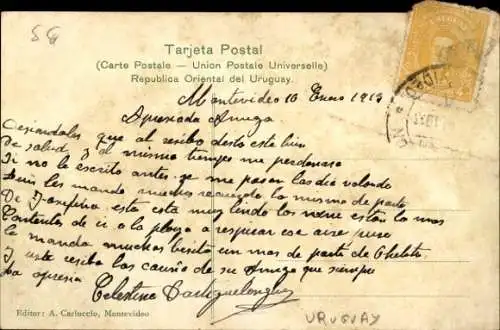 5G
Tarjeta Postal
(Carte Postale — Union Postale Universelle)
Republica Oriental del Uruguay.
Montevideo 10 Enero 1913
Apreciada Amiga
Deseandoles que al recibo desta este bien
De salud y al mismo tiempo me perdonara
Si no le escrito antes se me pasan los dia volando
Luis les manda muchos recuerdo lo mismo de parte
De Josefina esta esta muy lindo los nene estan lo mas
Contentos de ir a la playa a respirar ese aire puro
le manda muchos besito un mas de parte de
Y uste reciba los cariño de su Amiga que siempre
La apresia
Celestina
Editor: A. Carluccio, Montevideo
URUGUAY